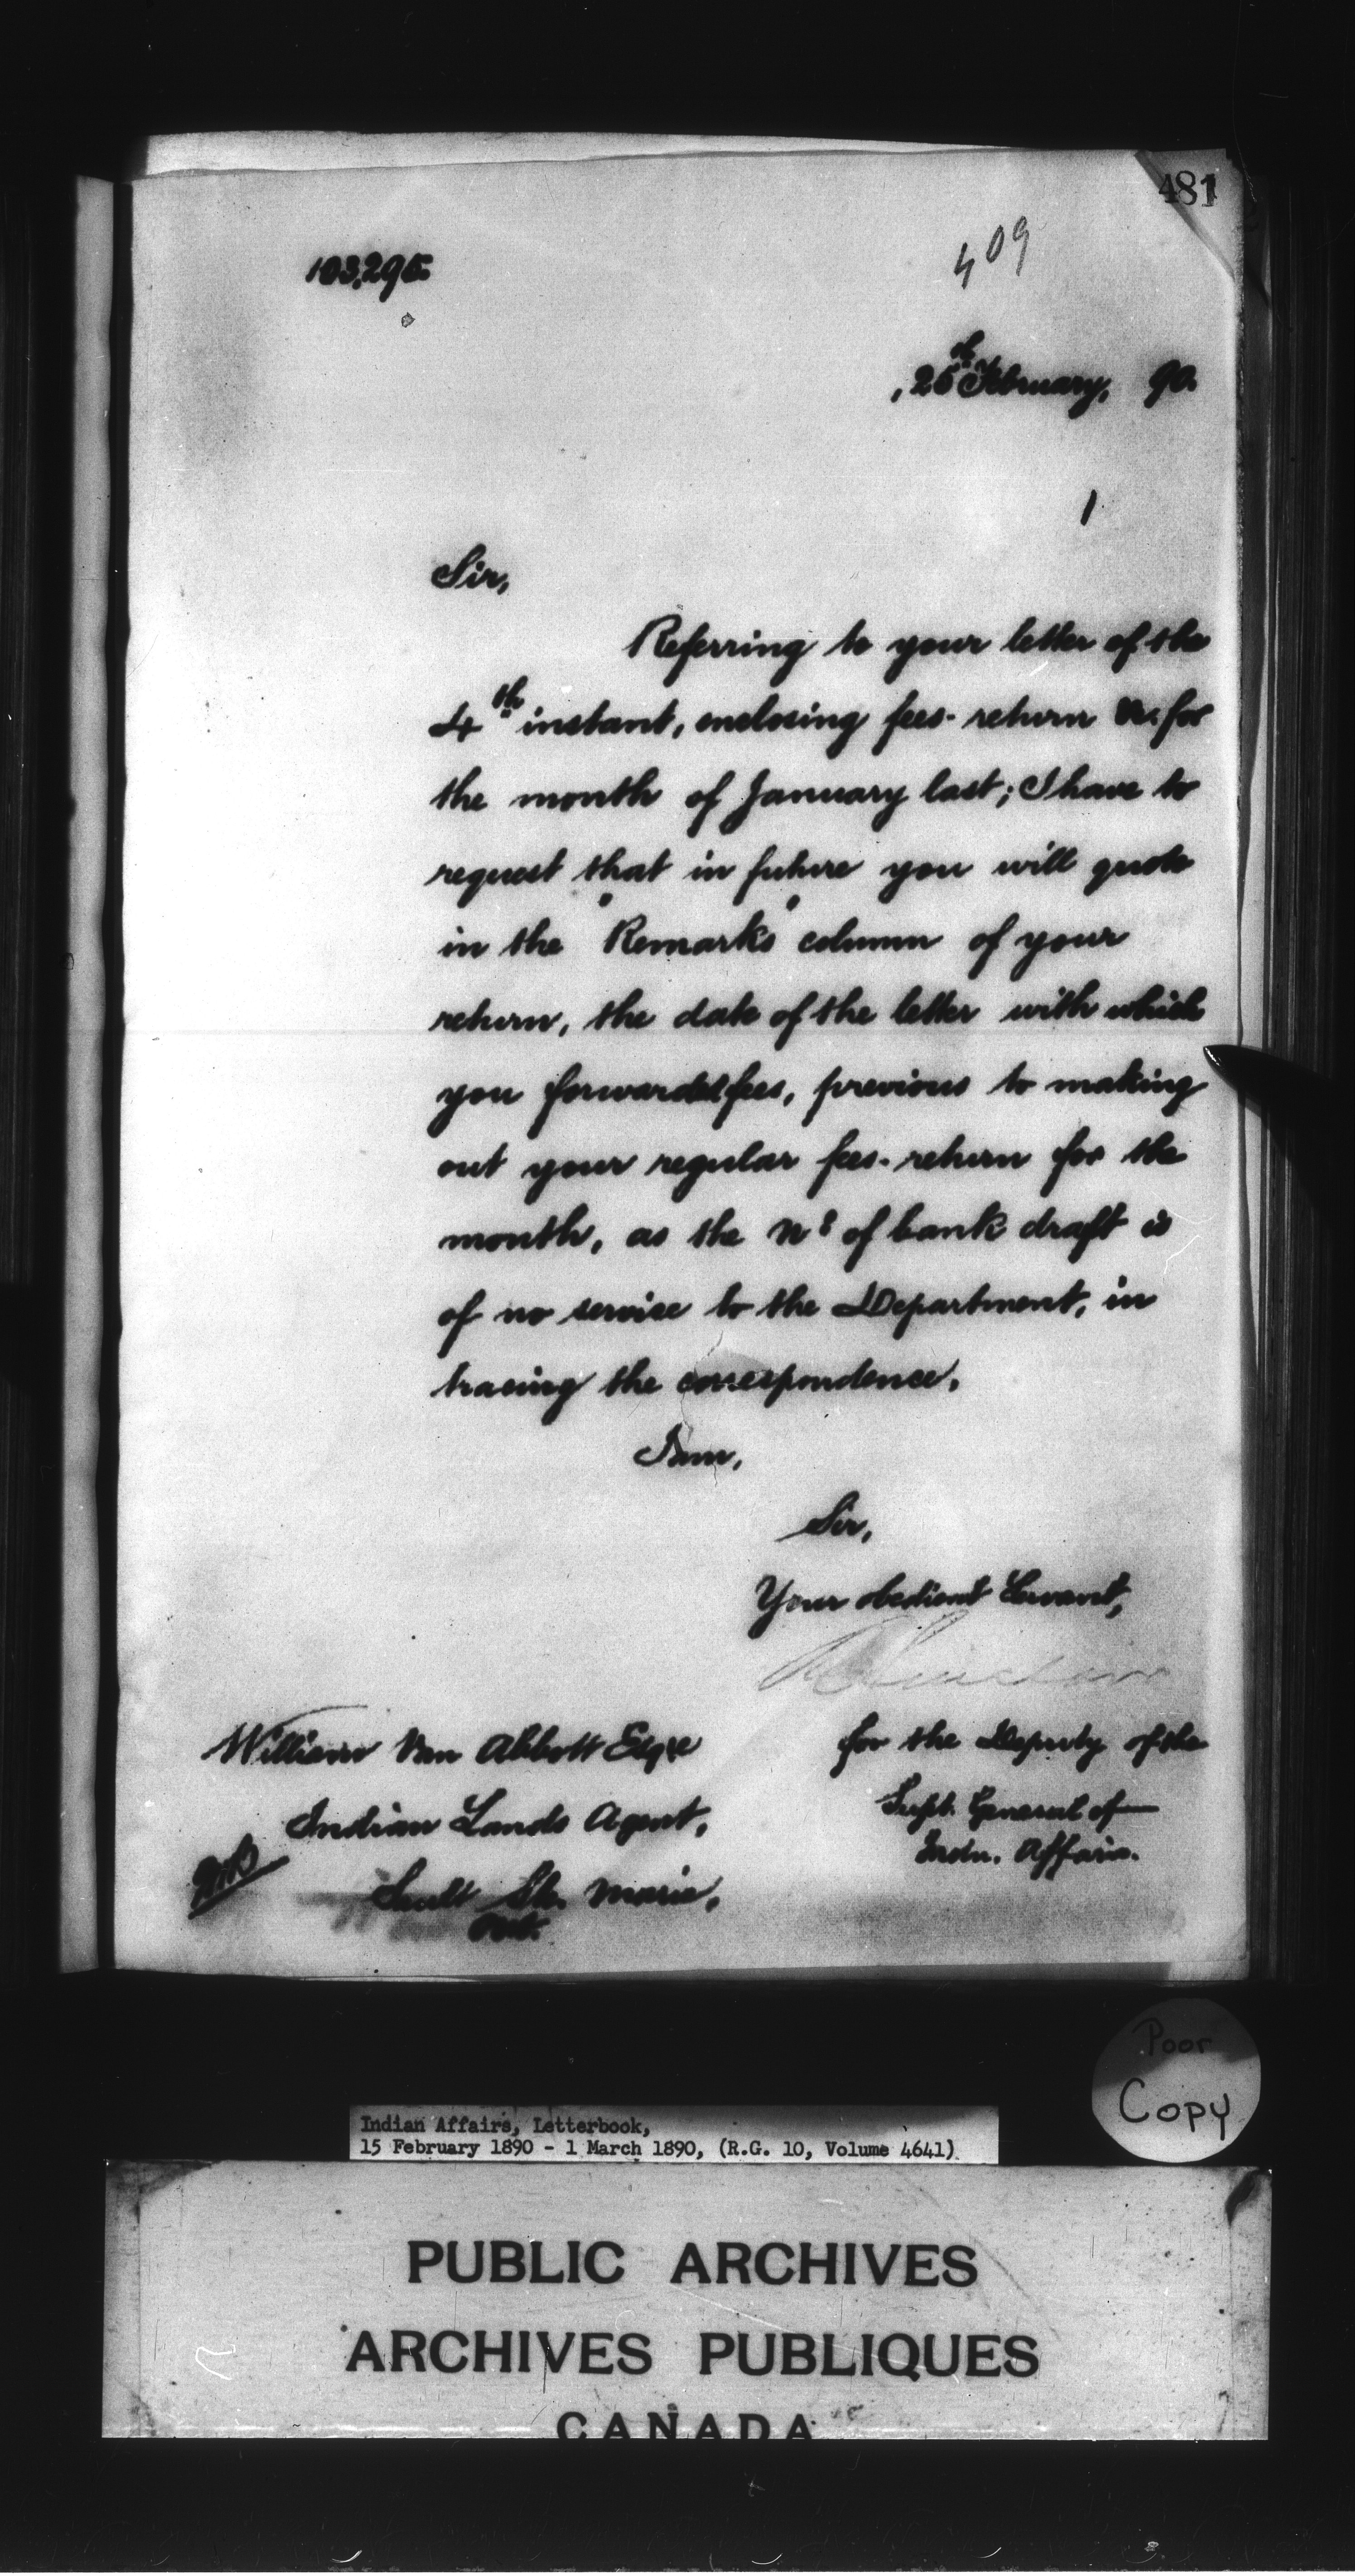 481
409
103,295.
, 25th February, 90.
Sir,
Referring to your letter of the
4th instant, enclosing fees-return &c. for
the month of January last; I have to
request that in future you will quote
in the "Remarks" column of your
return, the date of the letter with which
you forwarded fees, previous to making
out your regular fees-return for the
month, as the No of bank draft is
of no service to the Department, in
tracing the correspondence.
I am,
Sir,
Your obedient Servant,
for the Deputy of the
Supt. General of
Indn. Affairs.
William Van Abbott Esqre
Indian Lands Agent,
Sault Ste. Marie,
Ont.
Poor
Copy
Indian Affairs, Letterbook,
15 February 1890 - 1 March 1890, (R.G. 10, Volume 4641)
PUBLIC ARCHIVES
ARCHIVES PUBLIQUES
CANADA